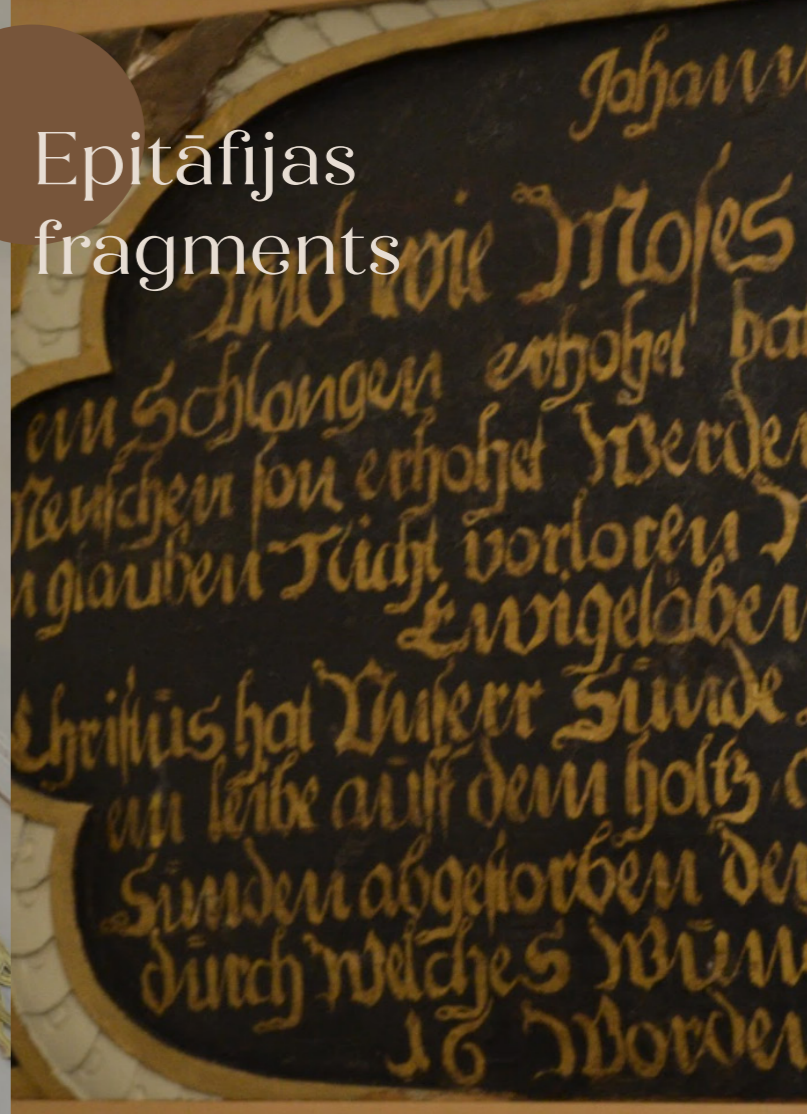 Epitāfijas
fragments
Johann
Und wie Moses
ein Schlangen erhohet ha
Menschen son erhohet Werde
n glauben Nicht vorloren
Ewigeläben
Christūs hat Unserr Sūnde
ein leibe aūff dem holtz
Sūnden abgestorben de
dūrch Welches Wūn
16 Worden